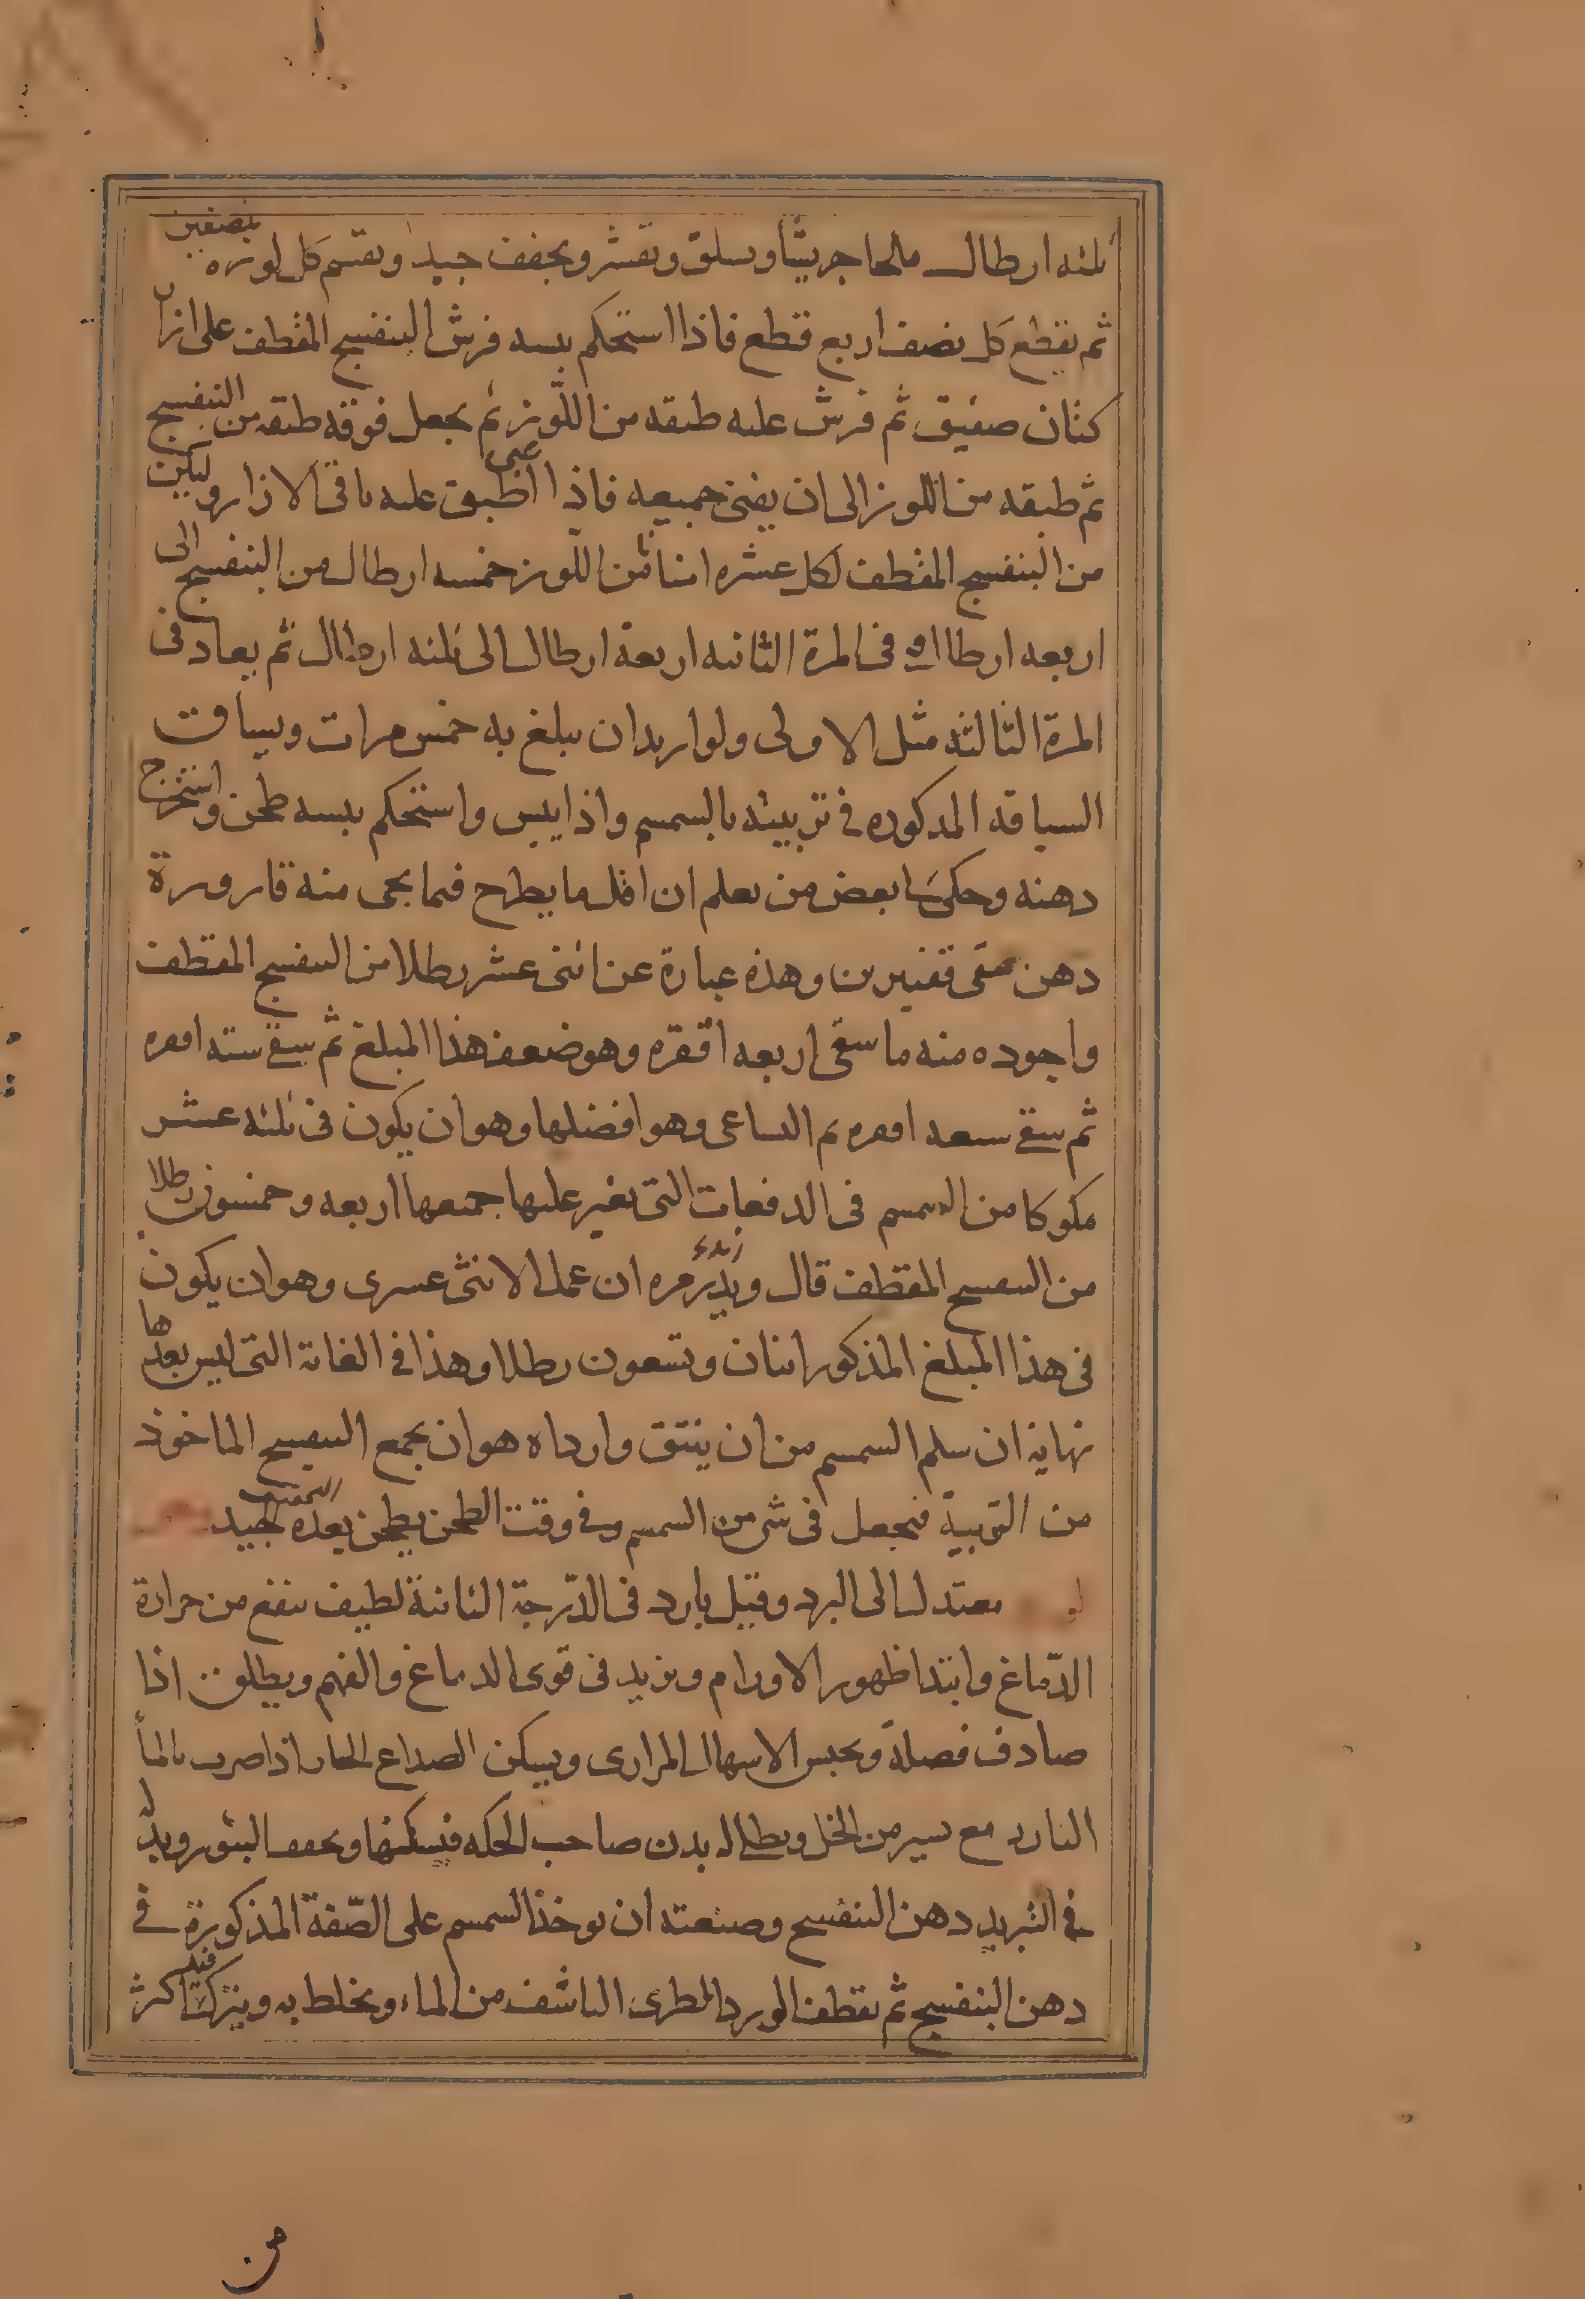 ثلثه ارطال ملحا جريشا ويسلق ويقشر ويجفف جيدا ويقسم كل لوزه بنصفين
ثم يقطع كل نصف اربع قطع فاذا استحكم يبسه فرش البنفسج المقطف على ازار
كتان صفيق ثم فرش عليه طبقه من اللوز ثم يجعل فوقه طبقه من البنفسج
ثم طبقه من اللوز الى ان يفنى جميعه فاذا اطبق عليه باقى الازار وليكن
من البنفسج المقطف لكل عشره امنا من اللوز خمسه ارطال من البنفسج الى
اربعه ارطال وفى المرة الثانيه اربعة ارطال الى ثلثه ارطال ثم يعاد فى
المرة الثالثه مثل الاولى ولو اريد ان يبلغ به خمس مرات ويساق
السياقه المذكوره فى تربيته بالسمسم واذا يبس واستحكم يبسه طحن واستخرج
دهنه وحكى بعض من يعلم ان اقل ما يطرح فيما يجى منه قارورة
دهن سقى قفيزين وهذه عبارة عن اثنى عشر رطلا من البنفسج المقطف
واجوده منه ما سقى اربعه اقفزه وهو ضعف هذا المبلغ ثم سقى سته اقفزه
ثم سقى سبعه اقفزه ثم الساعى وهو افضلها وهو ان يكون فى ثلثه عشر
مكوكا من السمسم فى الدفعات التى يغير عليها جميعها اربعه وخمسون رطلا
من البنفسج المقطف قال مره ان عمل الاثنى عشرى وهو ان يكون
فى هذا المبلغ المذكور اثنان وتسعون رطلا وهذا فى الغاية التى ليس بعدها
نهاية ان سلم السمسم من ان ينتق وارداه هو ان يجمع البنفسج الماخوذ
من التربية فيجعل فى شى من السمسم وفى وقت الطحن يطحن بعده الجيد
معتدل الى البرد وقيل بارد فى الدّرجة الثانية لطيف ينفع من حرارة
الدّماغ وابتدا ظهور الاورام ويزيد فى قوى الدماغ والفهم ويطلق اذا
صادف فضلة ويحبس الاسهال المرارى ويسكن الصداع الحار اذا ضرب بالمأ
البارد مع يسير من الخل ويطلى به بدن صاحب الحكه فيسكنها ويجفف البثور وبدله
فى التبريد دهن البنفسج وصنعته ان يوخذ السمسم على الصّفة المذكورة فى
دهن البنفسج ثم يقطف الورد الطرى الناشف من الماء ويخلط به ويترك فيه اكثر
من